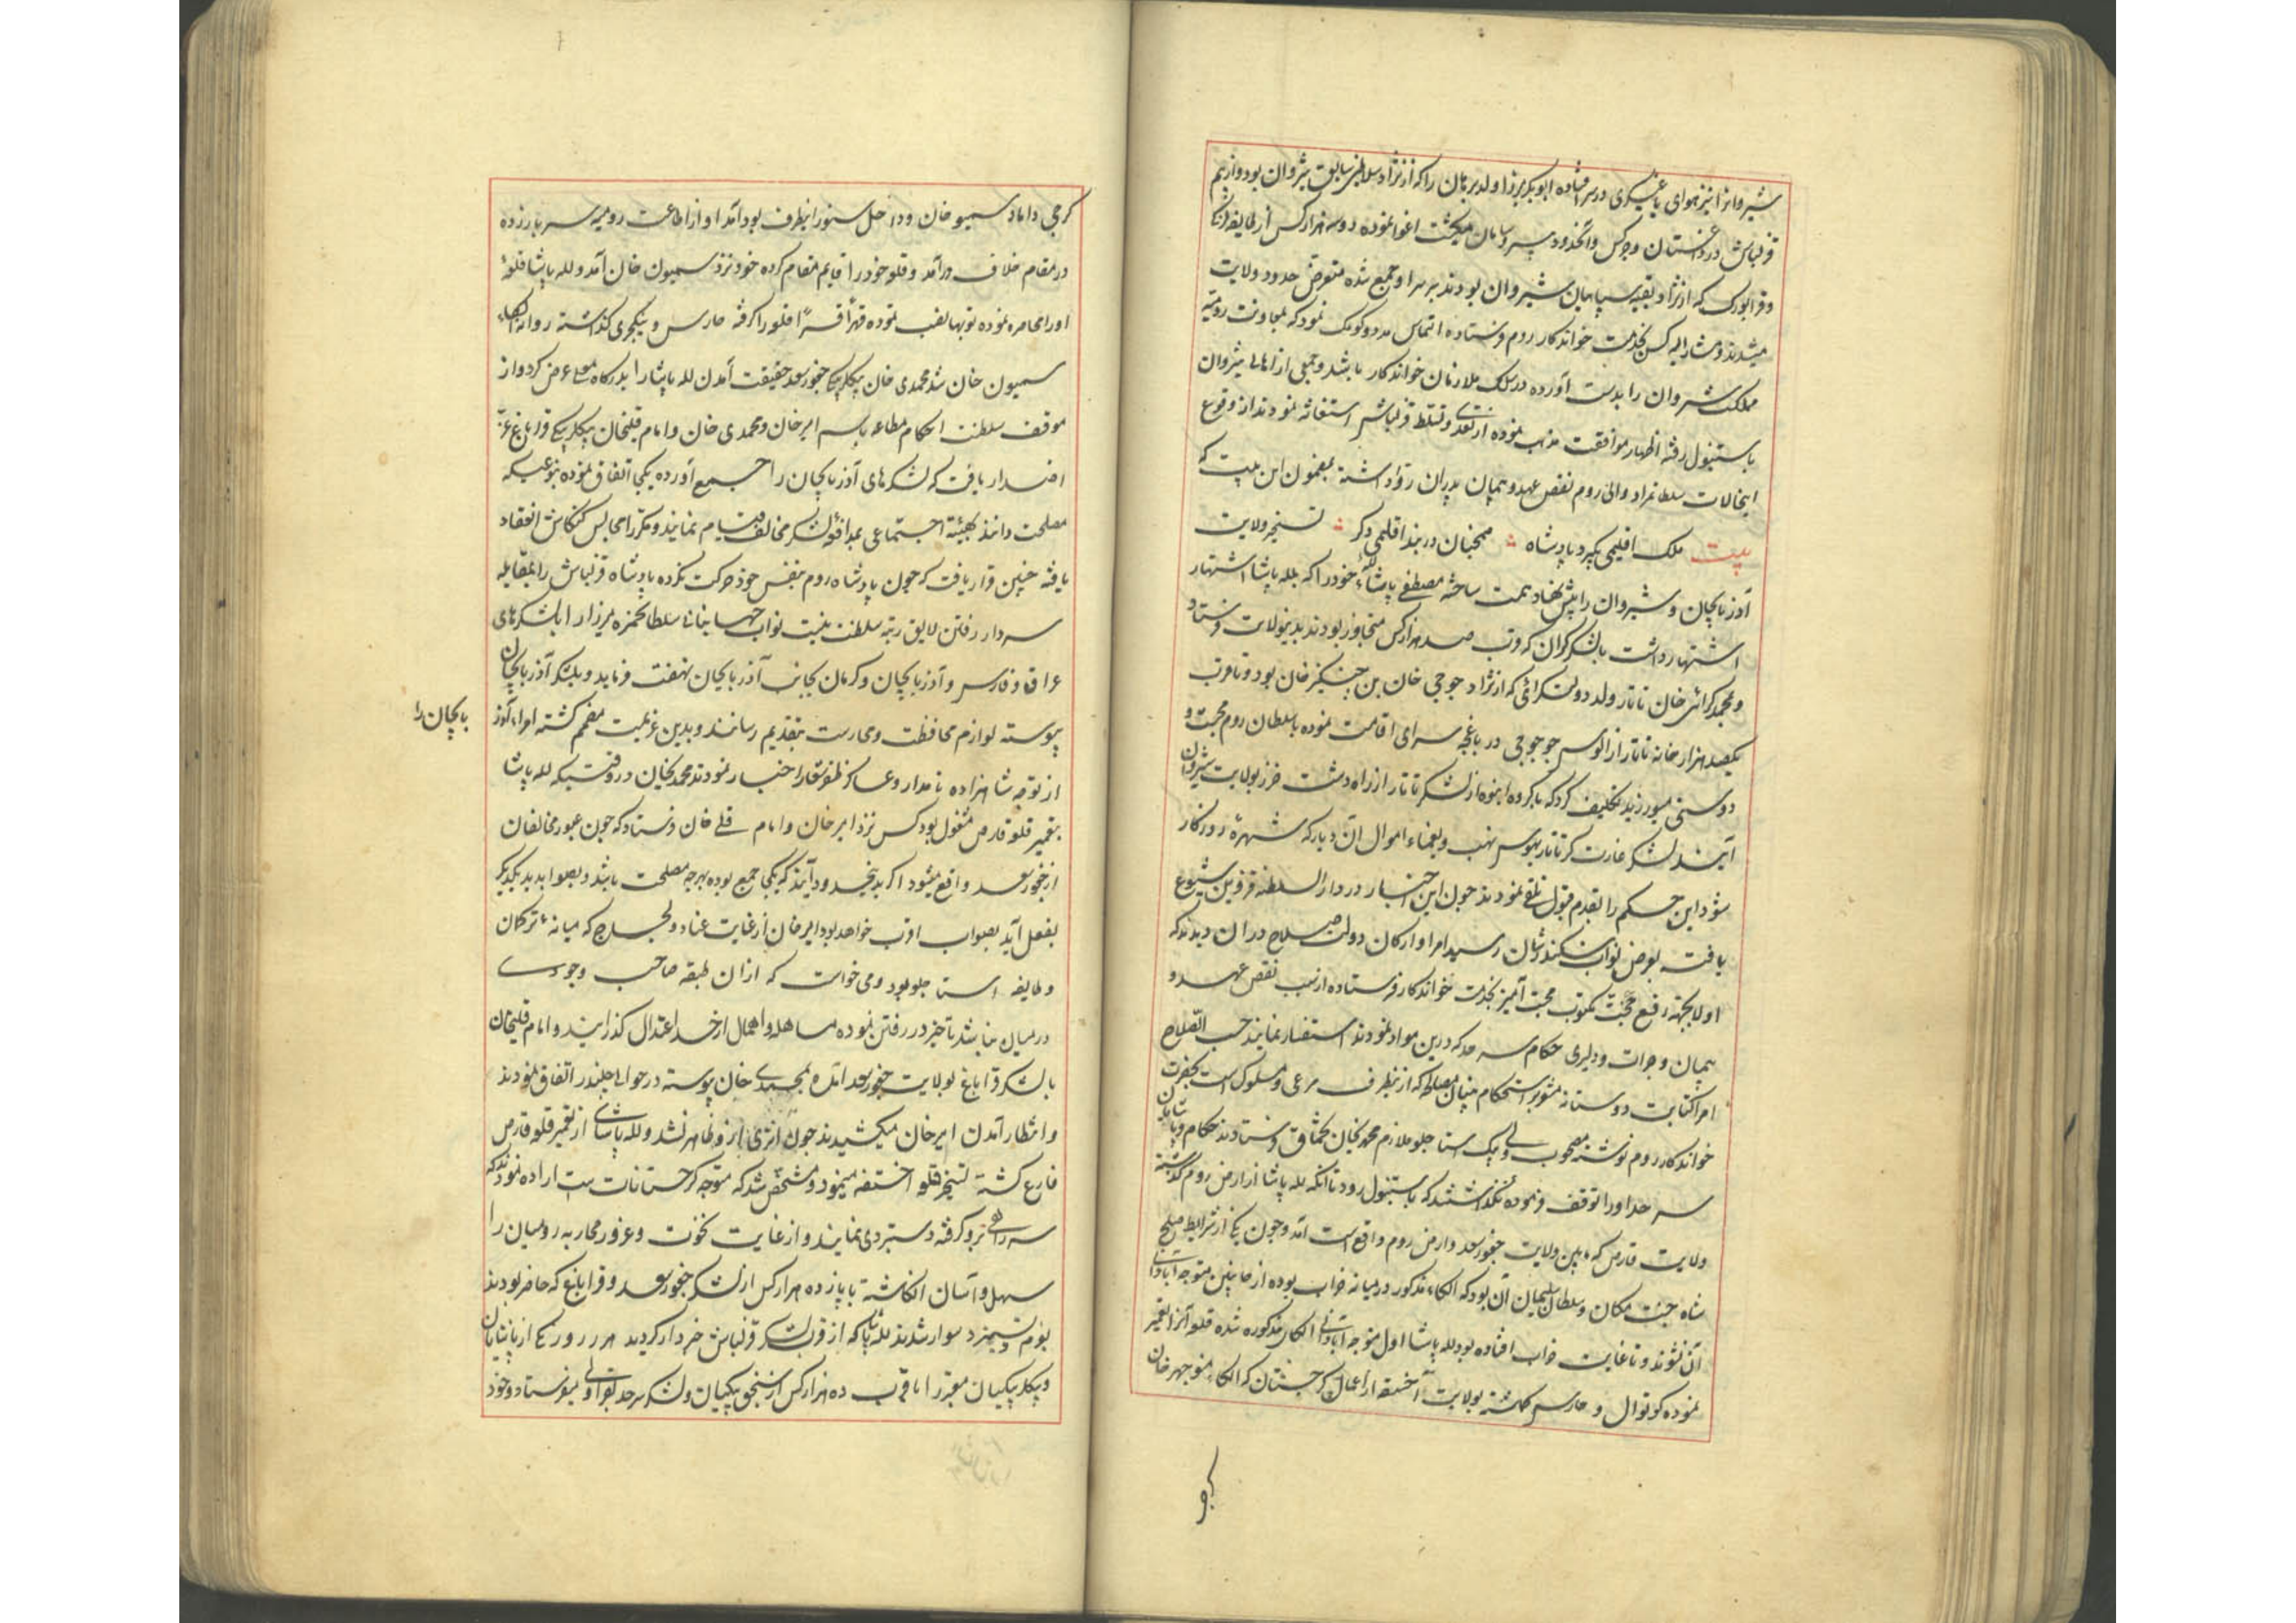 شیروانرا نیز هوای یاغیگری در سر افتاده ابوبکر میرزا ولد برهان را که از نژاد سلاطین سابق شیروان بود و از بیم
قزلباش در داغستان و چرکس و آنحدود بی سر و سامان میگشت اغوا نموده دو سه هزار کس از طایفه لزکی
و قرابورک که از نژاد بقیه سپاهیان شیروان بودند بر سر او جمع شده متعرض حدود ولایت
میشدند و مشار الیه کس بخدمت خواندکار روم فرستاده التماس مدد و کومک نمود که بمعاونت رومیه
مملکت شیروان را بدست آورده در سلک ملازمان خواندکار باشد و جمعی از اهالی شیروان
باستنبول رفته اظهار موافقت مذهب نموده از تعدی و تسلط قزلباش استغاثه نمودند از وقوع
اینحالات سلطانمراد والی روم نقض عهد و پیمان پدران روا داشته بمضمون این بیت که
بیت ملک اقلیمی بگیرد پادشاه همچنان در بند اقلیمی دگر تسخیر ولایت
آذربایجان و شیروان را پیش نهاد همت ساخته مصطفی پاشا لله خود را که بلله پاشا اشتهار
اشتهار داشت با لشکر گران که قرب صد هزار کس متجاوز بودند بدینولایت فرستاد
و محمد کرای خان تاتار ولد دولتکرای که از نژاد جوجی خان بن چنگیز خان بود و تا قرب
یکصد هزار خانه تاتار از الوس جوجی در باغچه سرای اقامت نموده با سلطان روم محبت و
دوستی میورزید تکلیف کرد که با گروه انبوه از لشکر تاتار از راه دشت خزر بولایت شیروان
آیند لشکر غارت گر تاتار بهوس نهب و یغماء اموال آن دیار که شهره روزگار
شود این حکم را بقدم قبول تلقی نمودند چون این اخبار در دار السلطنه قزوین شیوع
یافت بعرض نواب سکندر شان رسید امرا و ارکان دولت صلاح در آن دیدند که
اولا بجهة رفع حجت مکتوب محبت آمیز بخدمت خواندکار فرستاده از سبب نقض عهد و
پیمان و جرات و دلیری حکام سرحد که درین مواد نمودند استفسار نمایند حسب الصلاح
امرا کتابت دوستانه مشعر بر استحکام بنیان مصالحه که ازینطرف مرعی و مسلوک است بحضرت
خواندکار روم نوشته مصحوب ولی بیک استاجلو ملازم محمدیخان تخماق فرستادند حکام و پاشایان
سرحد او را توقف فرموده نگذاشتند که باستنبول رود تا آنکه لله پاشا از ارض روم گذشته
ولایت قارص که مابین ولایت چخورسعد و ارض روم واقع است آمد و چون یکی از شرایط صلح
شاه جنت مکان و سلطان سلیمان آن بود که الکاء مذکور در میانه خراب بوده از جانبین متوجه آبادانی
آن نشوند و تا غایت خراب افتاده بود لله پاشا اول متوجه آبادانی الکای مذکوره شده قلعه آنرا تعمیر
نموده کوتوال و حارس گماشته بولایت آخسقه از اعمال گرجستان که الکاء منوچهر خان
گرجی
گرجی داماد سمیون خان و داخل سنور اینطرف بود آمد او از اطاعت رومیه سر باز زده
در مقام خلاف در آمد و قلعه خود را قایم مقام کرده خود نزد سمیون خان آمد و لله پاشا قلعهٔ
او را محاصره نموده توپها نصب نموده قهراً قسراً قلعه را گرفته حارس و ینکچری گذاشته روانه الکاء
سمیون خان شد محمدی خان بیگلربیگی چخورسعد حقیقت آمدن لله پاشا را بدرگاه معلی عرض کرد و از
موقف سلطنت احکام مطاعه باسم امیر خان و محمدی خان و امام قلیخان بیگلربیگی قراباغ عز
اصدار یافت که لشکرهای آذربایجان را جمع آورده یکجا اتفاق نموده بنوعیکه
مصلحت دانند بهیئة اجتماعی بمدافعه لشکر مخالف قیام نمایند و مکررا مجالس کنکاش انعقاد
یافته چنین قرار یافت که چون پادشاه روم بنفس خود حرکت نکرده پادشاه قزلباش را بمقابله
سردار رفتن لایق رتبه سلطنت نیست نواب جهانبانی سلطان حمزه میرزا را با لشکرهای
عراق و فارس و آذربایجان و کرمان بجانب آذربایجان نهضت فرماید و بلشکر آذربایجان
پیوسته لوازم محافظت و محارست بتقدیم رسانند و بدین عزیمت مصمم گشته امراء آذر
بایجان را
از توجه شاهزاده نامدار و عساکر ظفر شعار اخبار نمودند محمدیخان در وقتیکه لله پاشا
بتعمیر قلعه قارص مشغول بود کس نزد امیر خان و امام قلی خان فرستاد که چون عبور مخالفان
از چخورسعد واقع میشود اگر بدینحدود آیند که یکجا جمع بوده بهرچه مصلحت باشد و بصوابدید یکدیگر
بفعل آید بصواب اقرب خواهد بود امیر خان از غایت عناد و لجاج که میانهٔ ترکمان
و طایفه استاجلو بود و می خواست که از آن طبقه صاحب وجودی
در میان نباشد تاخیر در رفتن نموده مساهله و اهمال از حد اعتدال گذرانید و امام قلیخان
با لشکر قراباغ بولایت چخورسعد آمده بمحمدی خان پیوسته در حوالی چلدر اتفاق نمودند
و انتظار آمدن امیر خان میکشیدند چون اثری ازو ظاهر نشد و لله پاشای از تعمیر قلعه قارص
فارغ گشته تسخیر قلعه اخسقه مینمود و مشخص شد که متوجه گرجستانات است اراده نمودند که
سر راهی برو گرفته دستبردی نمایند و از غایت نخوت و غرور محاربه رومیان را
سهل و آسان انگاشته با پانزده هزار کس از لشکر چخورسعد و قراباغ که حاضر بودند
بعزم ستیز و سوار شدند لله پاشا که از قرب لشکر قزلباش خبردار گردید هر روز یکی از پاشایان
و بیگلربیگیان معتبر را با قرب ده هزار کس از سنجق بیگیان و لشکر سرحد بقراولی میفرستاد و خود